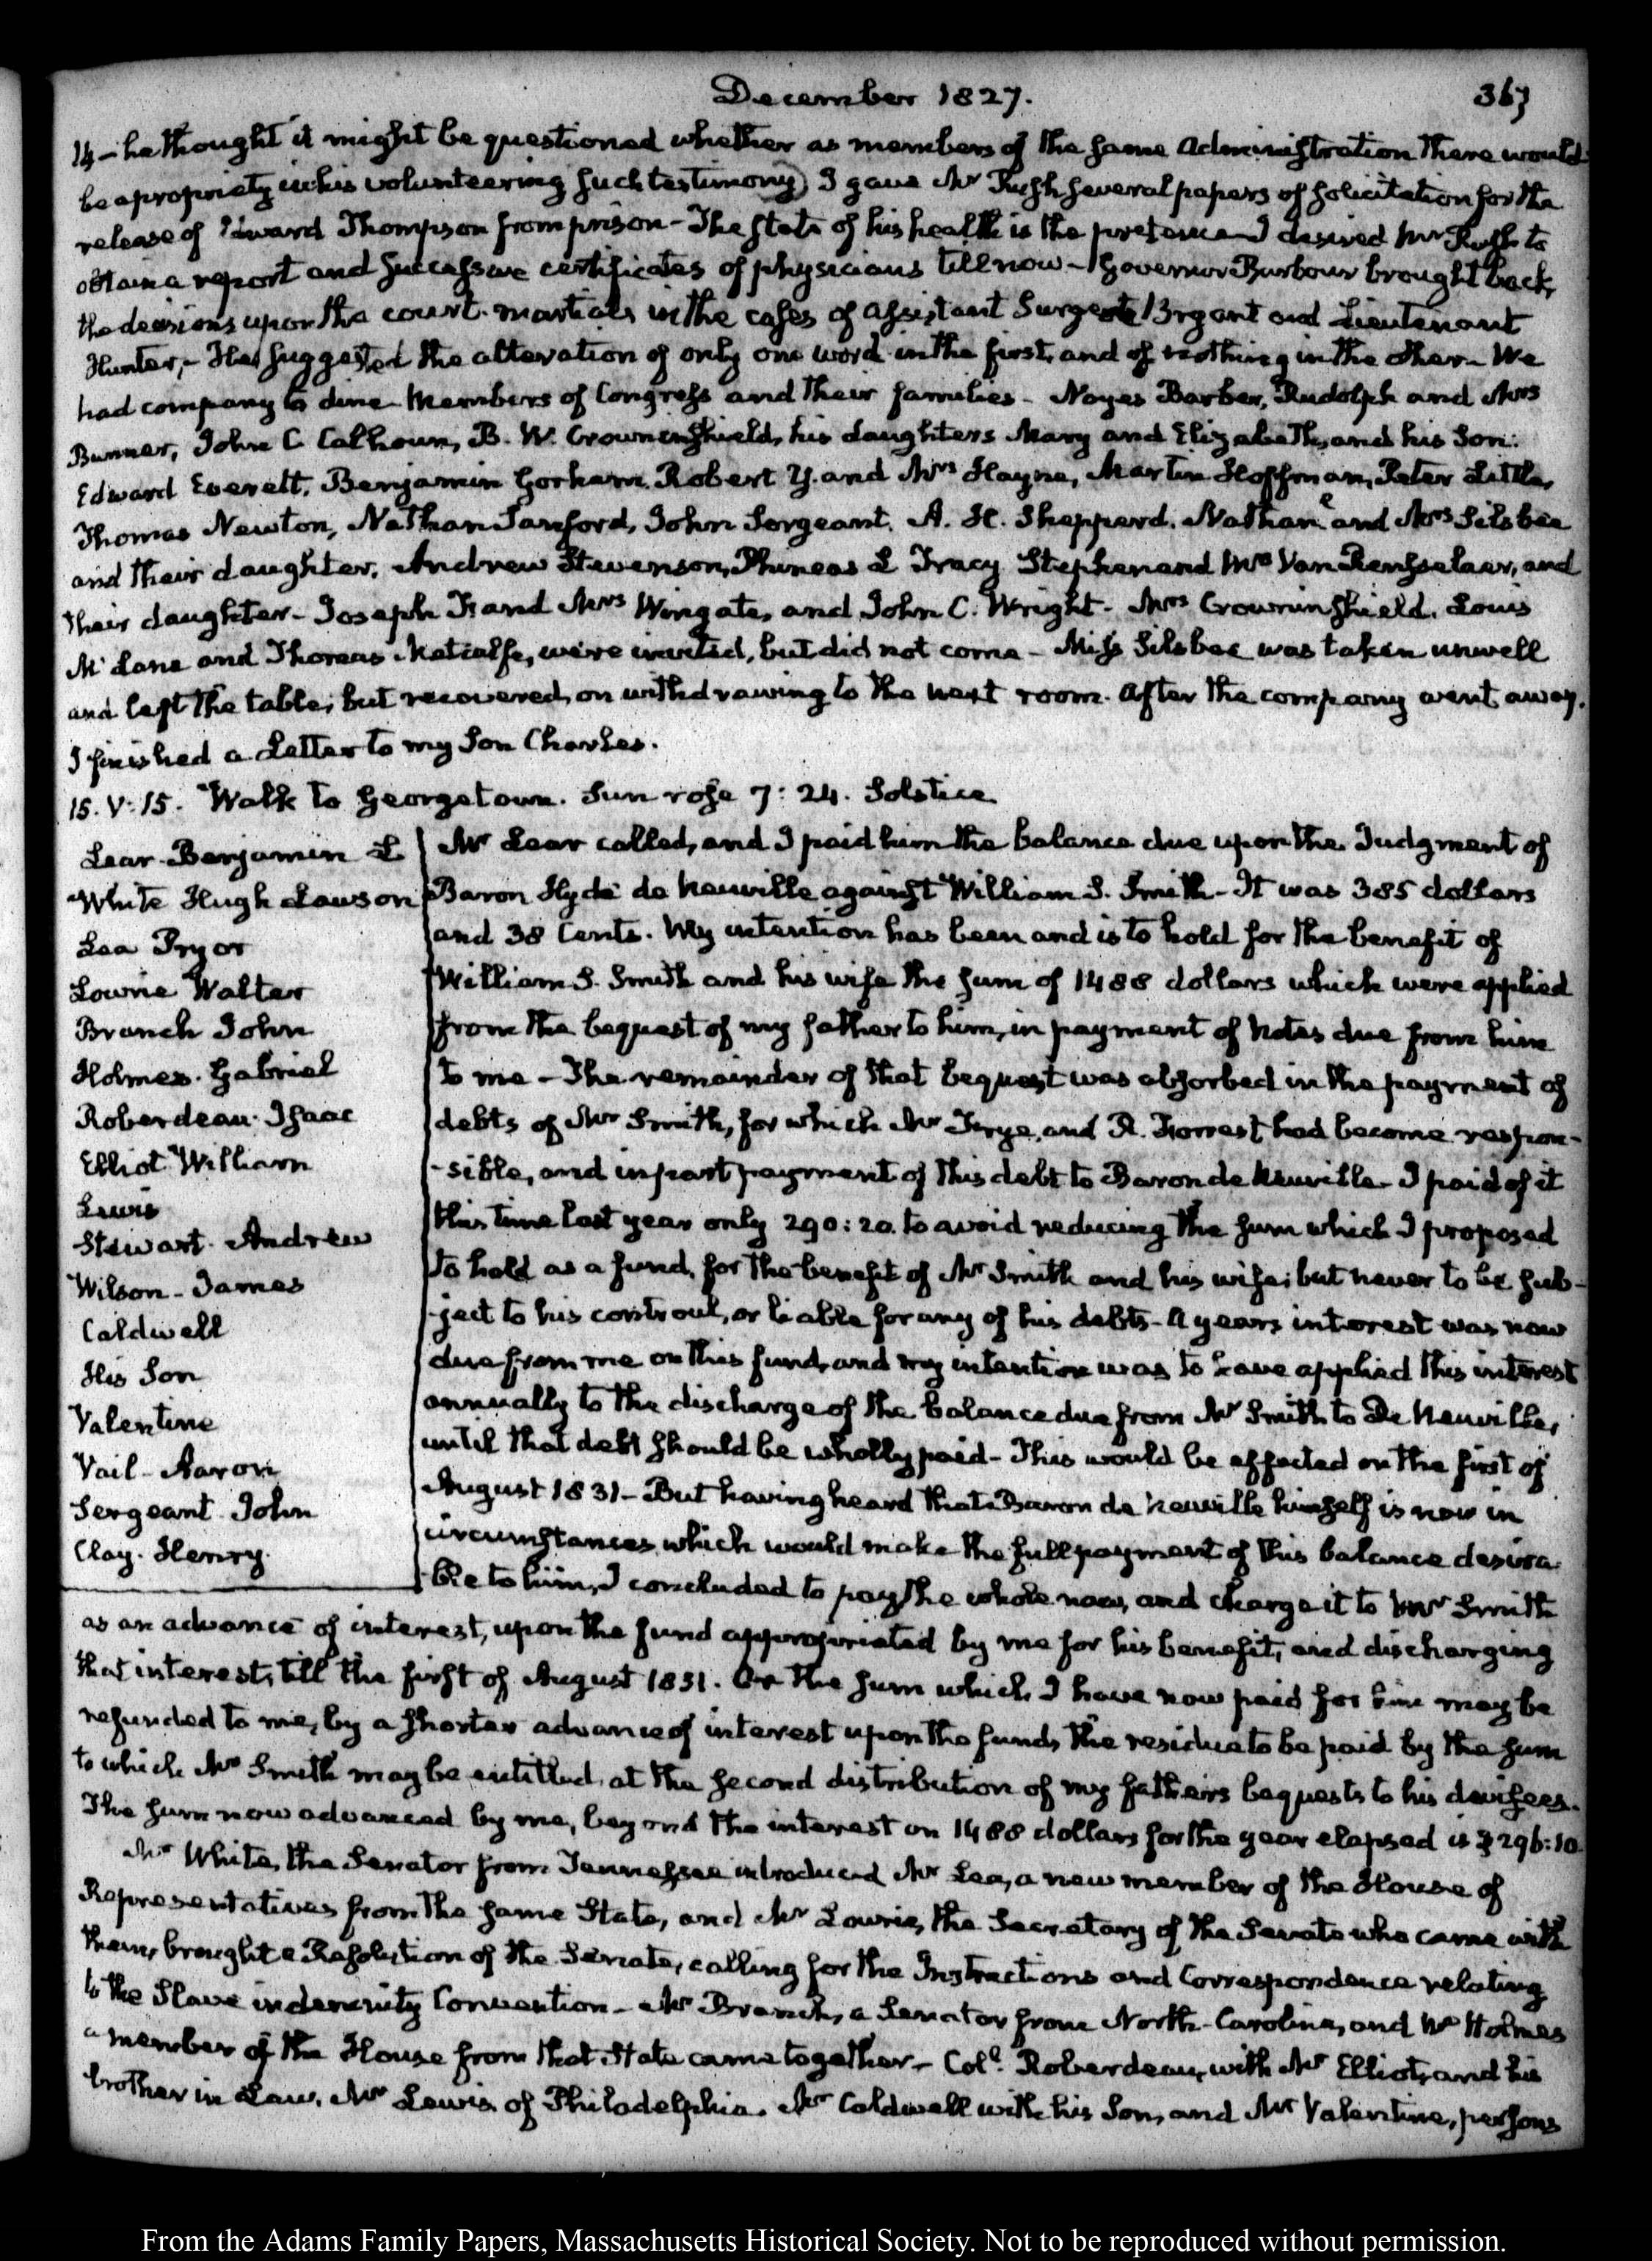 December 1827.
367
14 – he thought it might be questioned whether as members of the same Administration there would
be a propriety in his volunteering such testimony) I gave Mr Rush several papers of solicitation for the
release of Edward Thompson from prison – The state of his health is the pretence and I desired Mr Rush to
obtain a report and successive certificates of physicians till now – Governor Barbour brought back,
the decisions upon the court-martials in the cases of Assistant Surgeon Bryant and Lieutenant
Hunter, – He suggested the alteration of only one word in the first, and of nothing in the other – We
had company to dine – Members of Congress and their families – Noyes Barber, Rudolph and Mrs
Bunner, John C. Calhoun, B. W. Crowninshield, his daughters Mary and Elizabeth, and his Son.
Edward Everett, Benjamin Gorham, Robert Y. and Mrs Hayne, Martin Hoffman, Peter Little,
Thomas Newton, Nathan Sanford, John Sergeant, A. H. Shepperd, Nathanl and Mrs Silsbee
and their daughter, Andrew Stevenson, Phineas L Tracy Stephen and Mrs Van Rensselaer, and
their daughter – Joseph F. and Mrs Wingate, and John C. Wright – Mrs Crowninshield, Louis
McLane and Thomas Metcalfe, were invited, but did not come – Miss Silsbee was taken unwell
and left the table; but recovered, on withdrawing to the next room. After the company went away.
I finished a Letter to my Son Charles.
15. V:15. Walk to Georgetown. Sun rose 7:24. Solstice
Lear. Benjamin L
White Hugh Lawson
Lea Pryor
Lowrie Walter
Branch John
Holmes. Gabriel
Roberdeau. Isaac
Elliot William
Lewis
Stewart. Andrew
Wilson – James
Caldwell
His Son
Valentine
Vail – Aaron
Sergeant John
Clay. Henry.
Mr Lear called, and I paid him the balance due upon the Judgment of
Baron Hyde de Neuville against William S. Smith – It was 385 dollars
and 38 Cents. My intention has been and is to hold for the benefit of
William S. Smith and his wife the sum of 1488 dollars which were applied
from the bequest of my father to him, in payment of notes due from him
to me – The remainder of that bequest was absorbed in the payment of
debts of Mr Smith, for which Mr Frye, and R. Forrest had become respon-
-sible, and in part payment of this debt to Baron de Neuville – I paid of it
this time last year only 290:20. to avoid reducing the sum which I proposed
to hold as a fund, for the benefit of Mr Smith and his wife; but never to be sub-
-ject to his controul, or liable for any of his debts – A years interest was now
due from me on this fund, and my intention was to have applied this interest
annually to the discharge of the balance due from Mr Smith to De Neuville,
until that debt should be wholly paid – This would be effected on the first of
August 1831 – But having heard that Baron de Neuville himself is now in
circumstances which would make the full payment of this balance desira-
-ble to him, I concluded to pay the whole now, and charge it to Mr Smith
as an advance of interest, upon the fund appropriated by me for his benefit, and discharging
that interest, till the first of August 1831. Or the sum which I have now paid for him may be
refunded to me, by a shorter advance of interest upon the fund, the residue to be paid by the sum
to which Mr Smith may be entitled, at the second distribution of my father's bequests to his devisees.
The sum now advanced by me, beyond the interest on 1488 dollars for the year elapsed is $296:10
Mr White, the Senator from Tennessee introduced Mr Lea, a new member of the House of
Representatives from the same State, and Mr Lowrie, the Secretary of the Senate who came with
them, brought a Resolution of the Senate, calling for the Instructions and Correspondence relating
to the Slave indemnity Convention – Mr Branch, a Senator from North-Carolina, and Mr Holmes
a member of the House from that State came together – Coll. Roberdeau, with Mr Elliot, and his
brother in Law, Mr Lewis of Philadelphia. Mr Caldwell with his Son, and Mr Valentine, persons
From the Adams Family Papers, Massachusetts Historical Society. Not to be reproduced without permission.